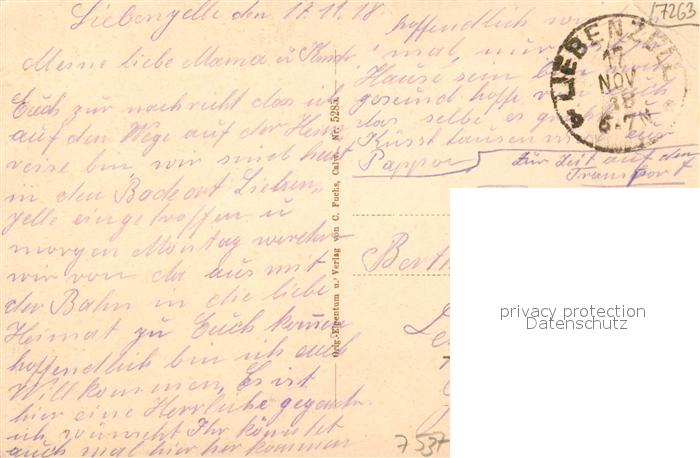 Liebenzelle den 17.11.18
Meine liebe Mama u Kinder
Euch zur nachricht das ich
auf den Wege auf der Heim
reise bin wir sind heut
in den Badeort Lieben,,
zelle eingetroffen u
morgen Montag werden
wir von da aus mit
der Bahn in die liebe
Heimat zu Euch kommen
hoffendlich bin ich auch
Willkommen, Es ist
hier eine Herrliche gegend
ich wünscht Ihr könntet
auch mal hier her kommen
hoffendlich
mal
Hause sein bin
gesund hoffe von Euch
das selbe es grüßt u
Küsst tausen mal
Pappa
Zur Zeit auf den
Transpor
LIEBENZELL
17
NOV
18
6-7N
7263
Orig.-Eigentum u. Verlag von C. Fuchs, Calw. Nr. 5285.
Berth
7537
privacy protection
Datenschutz